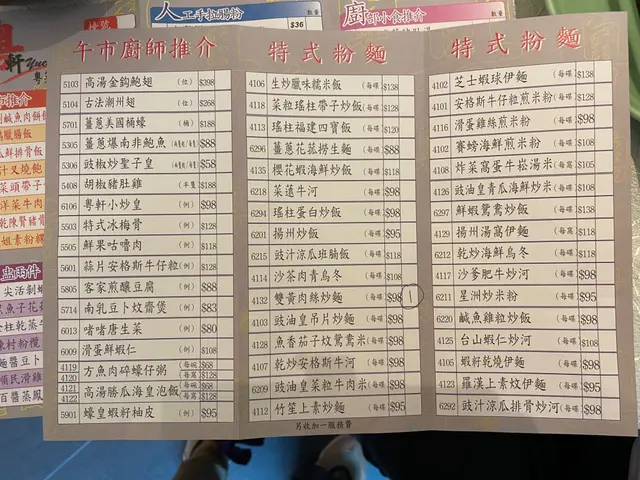 人工手拉腸粉
$36
廚部小食推介
午市廚師推介
5103 高湯金鈎鮑翅 (位) $398
5104 古法潮州翅 (位) $268
5701 薑蔥美國桶蠔 (桶) $188
5305 薑蔥爆南非鮑魚 $88
5306 豉椒炒聖子皇 $58
5408 胡椒豬肚雞 (半隻) $188
6106 粵軒小炒皇 (例) $98
5503 特式冰梅骨 (例) $128
5505 鮮果咕嚕肉 (例) $118
5601 蒜片安格斯牛仔粒 (例) $128
5805 客家煎釀豆腐 (例) $88
5714 南乳豆卜炆齋煲 (例) $83
6013 啫啫唐生菜 (例) $80
6009 滑蛋鮮蝦仁 (例) $108
4119 方魚肉碎蠔仔粥 (每碗) $68
4120 (每窩) $128
4121 高湯勝瓜海皇泡飯 (每碗) $68
4122 (每窩) $128
5901 蠔皇蝦籽柚皮 (例) $95
特式粉麵
4106 生炒臘味糯米飯 (每碟) $138
4118 菜粒瑤柱帶子炒飯 (每碟) $128
4113 瑤柱福建四寶飯 (每碟) $120
6296 薑蔥花菇撈生麵 (每碟) $88
4139 櫻花蝦海鮮炒飯 (每碟) $118
6218 菜薳牛河 (每碟) $98
6294 瑤柱蛋白炒飯 (每碟) $98
6201 揚州炒飯 (每碟) $95
6215 豉汁涼瓜班腩飯 (每碟) $118
4114 沙茶肉青烏冬 (每碟) $108
4132 雙黃肉絲炒麵 (每碟) $98 1
4103 豉油皇吊片炒麵 (每碟) $98
4128 魚香茄子炆鴛鴦米 (每碟) $98
4107 乾炒安格斯牛河 (每碟) $98
6209 豉油皇菜粒牛肉米 (每碟) $98
4112 竹笙上素炒麵 (每碟) $95
另收加一服務費
特式粉麵
4102 芝士蝦球伊麵 (每碟) $138
4101 安格斯牛仔粒煎米粉 (每碟) $128
4116 滑蛋雞絲煎米粉 (每碟) $98
4109 賽螃蟹海鮮煎米粉 (每碟) $108
4108 炸菜窩蛋牛崧湯米 (每窩) $105
4126 豉油皇青瓜海鮮炒米 (每碟) $108
6297 鮮蝦鴛鴦炒飯 (每碟) $138
4129 揚州湯窩伊麵 (每窩) $118
6212 乾炒海鮮烏冬 (每碟) $118
4117 沙爹肥牛炒河 (每碟) $98
6211 星洲炒米粉 (每碟) $95
6220 鹹魚雞粒炒飯 (每碟) $98
4125 台山蝦仁炒河 (每碟) $108
4105 蝦籽乾燒伊麵 (每碟) $98
4123 羅漢上素炆伊麵 (每碟) $95
6292 豉汁涼瓜排骨炒河 (每碟) $98